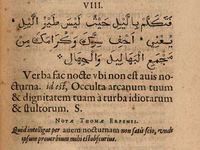 VIII.
فتكلم يا ليل حيث ليس طير الليل
يعني اخف سرك وكرامتك من
مجمع البهاليل والجهال
Verba fac nocte vbi non est auis no-
cturna. id est, Occulta arcanum tuum
& dignitatem tuam à turba idiotarum
& stultorum.
NOTÆ THOMÆ ERPENII.
Quid intelligat per auem nocturnam non satis scio, vnde
ipsum prouerbium mihi est obscurius.